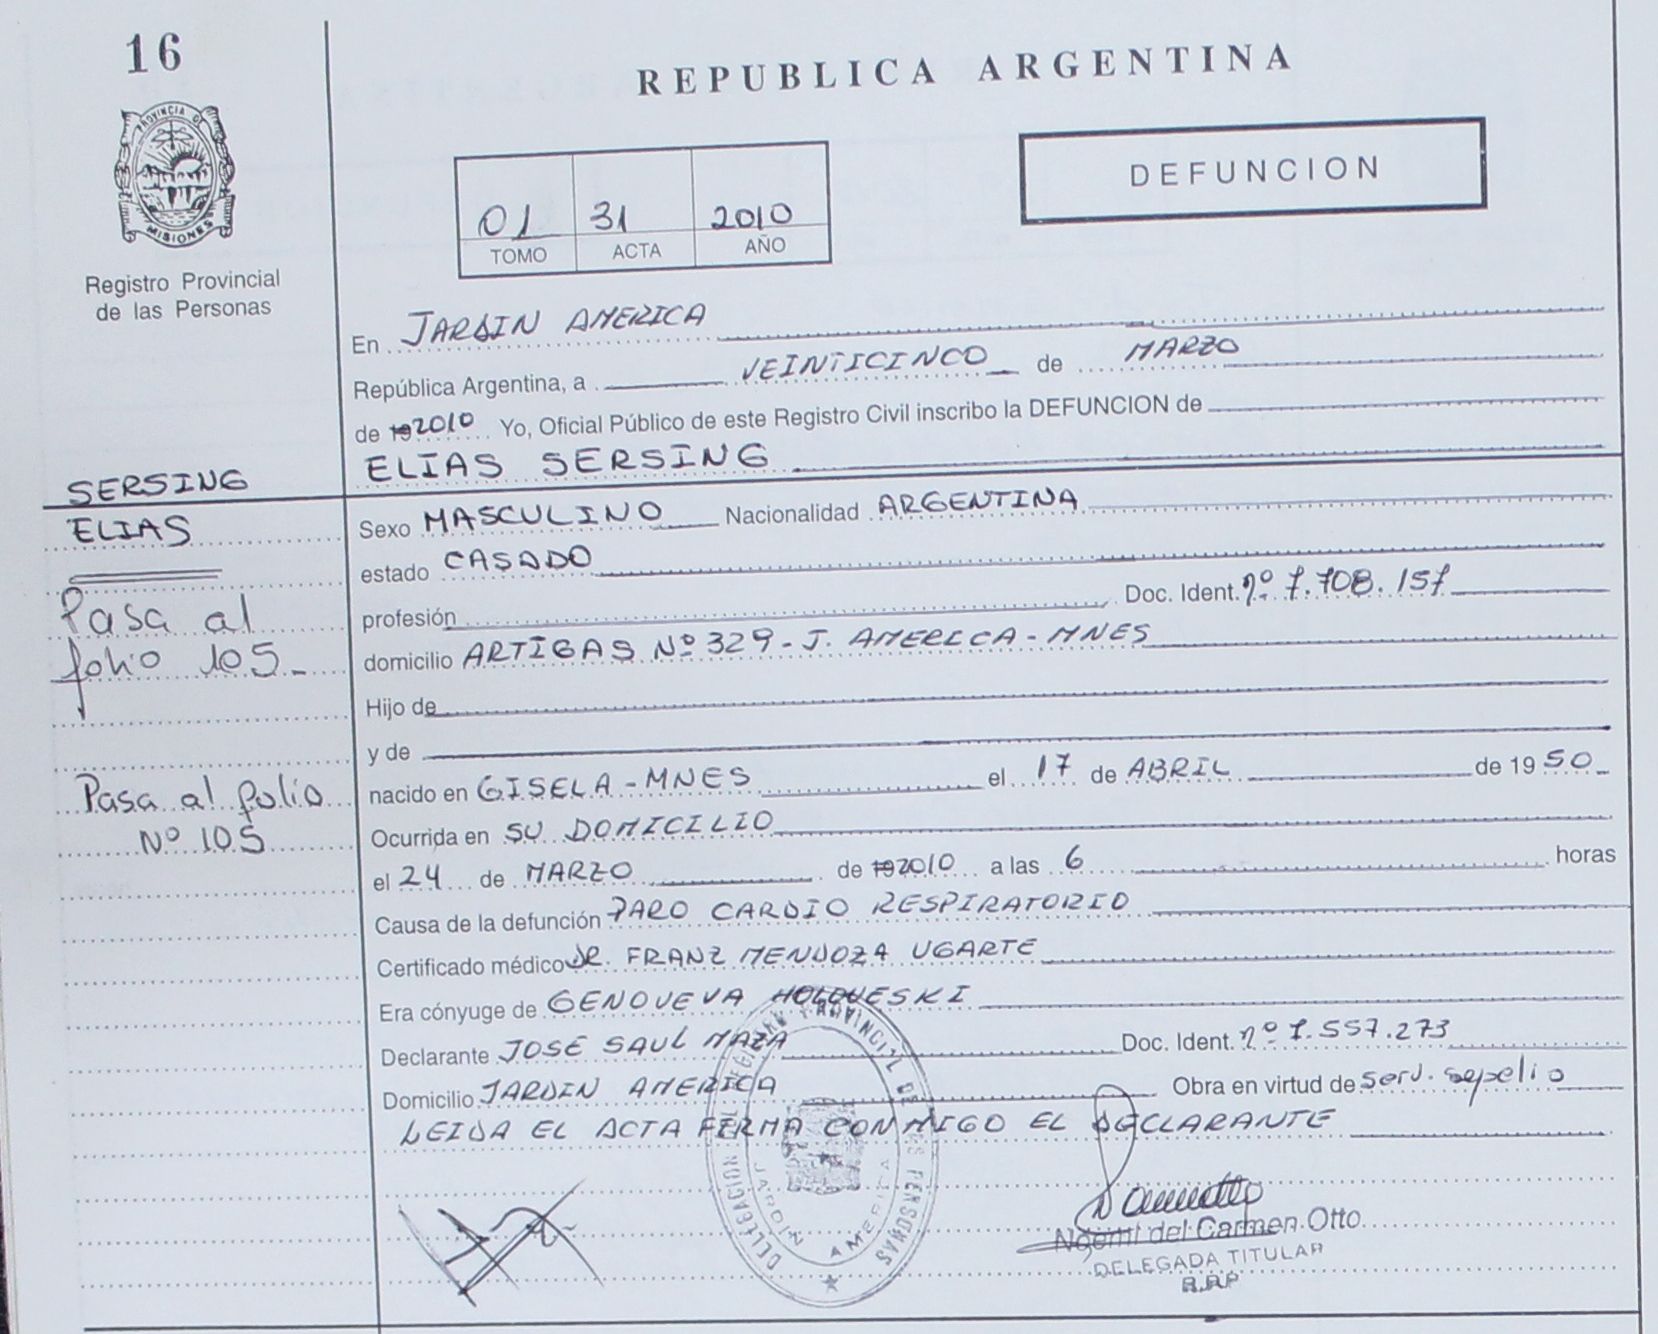 16
REPUBLICA ARGENTINA
PROVINCIA DE
MISIONES
Registro Provincial
de las Personas
01 31 2010
TOMO ACTA AÑO
DEFUNCION
En JARDIN AMERICA
República Argentina, a VEINTICINCO de MARZO
de 192010 Yo, Oficial Público de este Registro Civil inscribo la DEFUNCION de
ELIAS SERSING
SERSING
ELIAS
Pasa al
folio 105
Pasa al folio
Nº 105
Sexo MASCULINO Nacionalidad ARGENTINA
estado CASADO
profesión Doc. Ident. nº 7.708.157
domicilio ARTIGAS Nº 329 - J. AMERICA - MNES
Hijo de
y de
nacido en GISELA - MNES el 17 de ABRIL de 1950
Ocurrida en SU DOMICILIO
el 24 de MARZO de 192010 a las 6 horas
Causa de la defunción PARO CARDIO RESPIRATORIO
Certificado médico DR. FRANZ MENDOZA UGARTE
Era cónyuge de GENOVEVA HOLOVESKI
Declarante JOSE SAUL MAZA Doc. Ident. nº 7.557.273
Domicilio JARDIN AMERICA Obra en virtud de serv. sepelio
LEIDA EL ACTA FIRMA CONMIGO EL DECLARANTE
DELEGACION DEL REGISTRO PROVINCIAL DE LAS PERSONAS
JARDIN AMERICA
Noemi del Carmen Otto
DELEGADA TITULAR
R.P.P